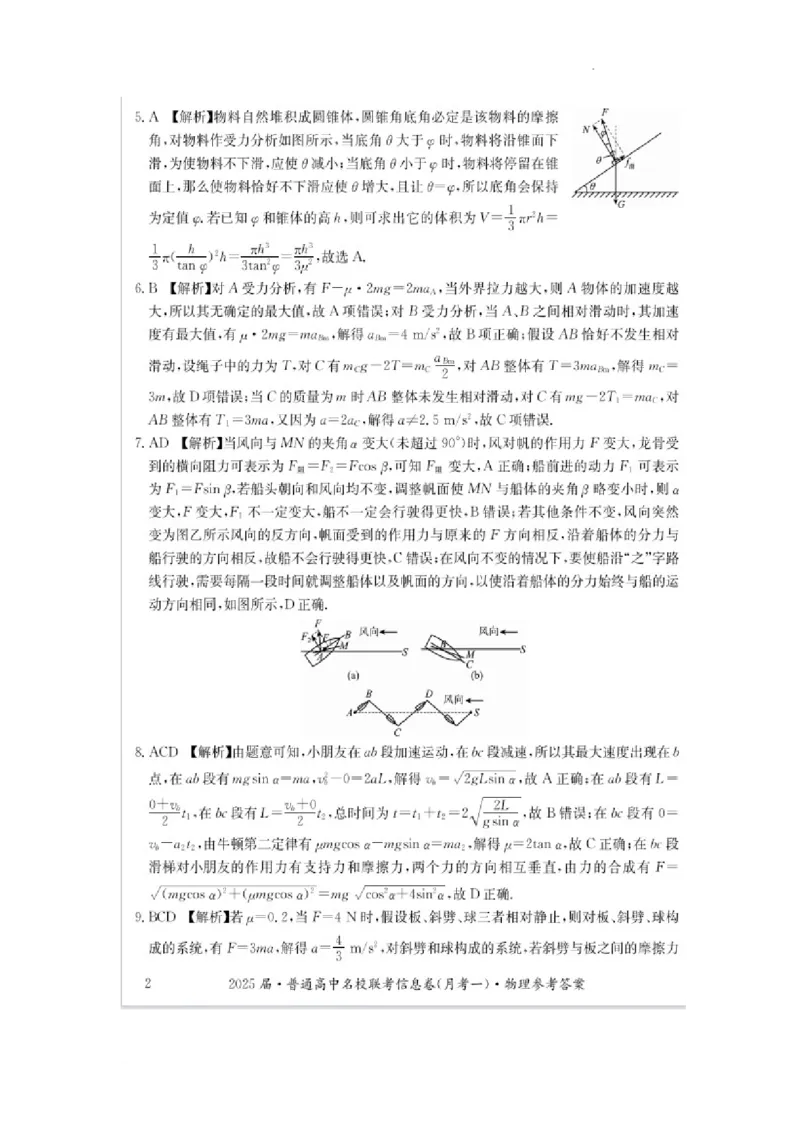 5. A 【解析】物料自然堆积成圆锥体,圆锥角底角必定是该物料的摩擦
角,对物料作受力分析如图所示,当底角 θ 大于 φ 时,物料将沿锥面下
滑,为使物料不下滑,应使 θ 减小;当底角 θ 小于 φ 时,物料将停留在锥
面上,那么使物料恰好不下滑应使 θ 增大,且让 θ=φ,所以底角会保持
为定值 φ.若已知 φ 和锥体的高 h,则可求出它的体积为 V=1/3 πr²h=
1/3 π(h/tan φ)²h=πh³/3tan²φ=πh³/3μ²,故选 A.
F
N
φ
θ
f_m
θ
G
6. B 【解析】对 A 受力分析,有 F-μ·2mg=2ma_A,当外界拉力越大,则 A 物体的加速度越
大,所以其无确定的最大值,故 A 项错误;对 B 受力分析,当 A、B 之间相对滑动时,其加速
度有最大值,有 μ·2mg=ma_Bm,解得 a_Bm=4 m/s²,故 B 项正确;假设 AB 恰好不发生相对
滑动,设绳子中的力为 T,对 C 有 m_C g-2T=m_C a_Bm/2,对 AB 整体有 T=3ma_Bm,解得 m_C=
3m,故 D 项错误;当 C 的质量为 m 时 AB 整体未发生相对滑动,对 C 有 mg-2T₁=ma_C,对
AB 整体有 T₁=3ma,又因为 a=2a_C,解得 a≠2.5 m/s²,故 C 项错误.
7. AD 【解析】当风向与 MN 的夹角 α 变大(未超过 90°)时,风对帆的作用力 F 变大,龙骨受
到的横向阻力可表示为 F阻=F₂=Fcos β,可知 F阻 变大,A 正确;船前进的动力 F₁ 可表示
为 F₁=Fsin β,若船头朝向和风向均不变,调整帆面使 MN 与船体的夹角 β 略变小时,则 α
变大,F 变大,F₁ 不一定变大,船不一定会行驶得更快,B 错误;若其他条件不变,风向突然
变为图乙所示风向的反方向,帆面受到的作用力与原来的 F 方向相反,沿着船体的分力与
船行驶的方向相反,故船不会行驶得更快,C 错误;在风向不变的情况下,要使船沿“之”字路
线行驶,需要每隔一段时间就调整船体以及帆面的方向,以使沿着船体的分力始终与船的运
动方向相同,如图所示,D 正确.
F
F₂
B
M
风向
S
(a)
风向
B
M
C
S
(b)
B
D
风向
A
S
C
8. ACD 【解析】由题意可知,小朋友在 ab 段加速运动,在 bc 段减速,所以其最大速度出现在 b
点,在 ab 段有 mgsin α=ma,v_b²-0=2aL,解得 v_b=√(2gLsin α),故 A 正确;在 ab 段有 L=
(0+v_b)/2 t₁,在 bc 段有 L=(v_b+0)/2 t₂,总时间为 t=t₁+t₂=2√(2L/(gsin α)),故 B 错误;在 bc 段有 0=
v_b-a₂t₂,由牛顿第二定律有 μmgcos α-mgsin α=ma₂,解得 μ=2tan α,故 C 正确;在 bc 段
滑梯对小朋友的作用力有支持力和摩擦力,两个力的方向相互垂直,由力的合成有 F=
√((mgcos α)²+(μmgcos α)²)=mg √(cos²α+4sin²α),故 D 正确.
9. BCD 【解析】若 μ=0.2,当 F=4 N 时,假设板、斜劈、球三者相对静止,则对板、斜劈、球构
成的系统,有 F=3ma,解得 a=4/3 m/s²,对斜劈和球构成的系统,若斜劈与板之间的摩擦力
2 2025 届·普通高中名校联考信息卷(月考一)·物理参考答案